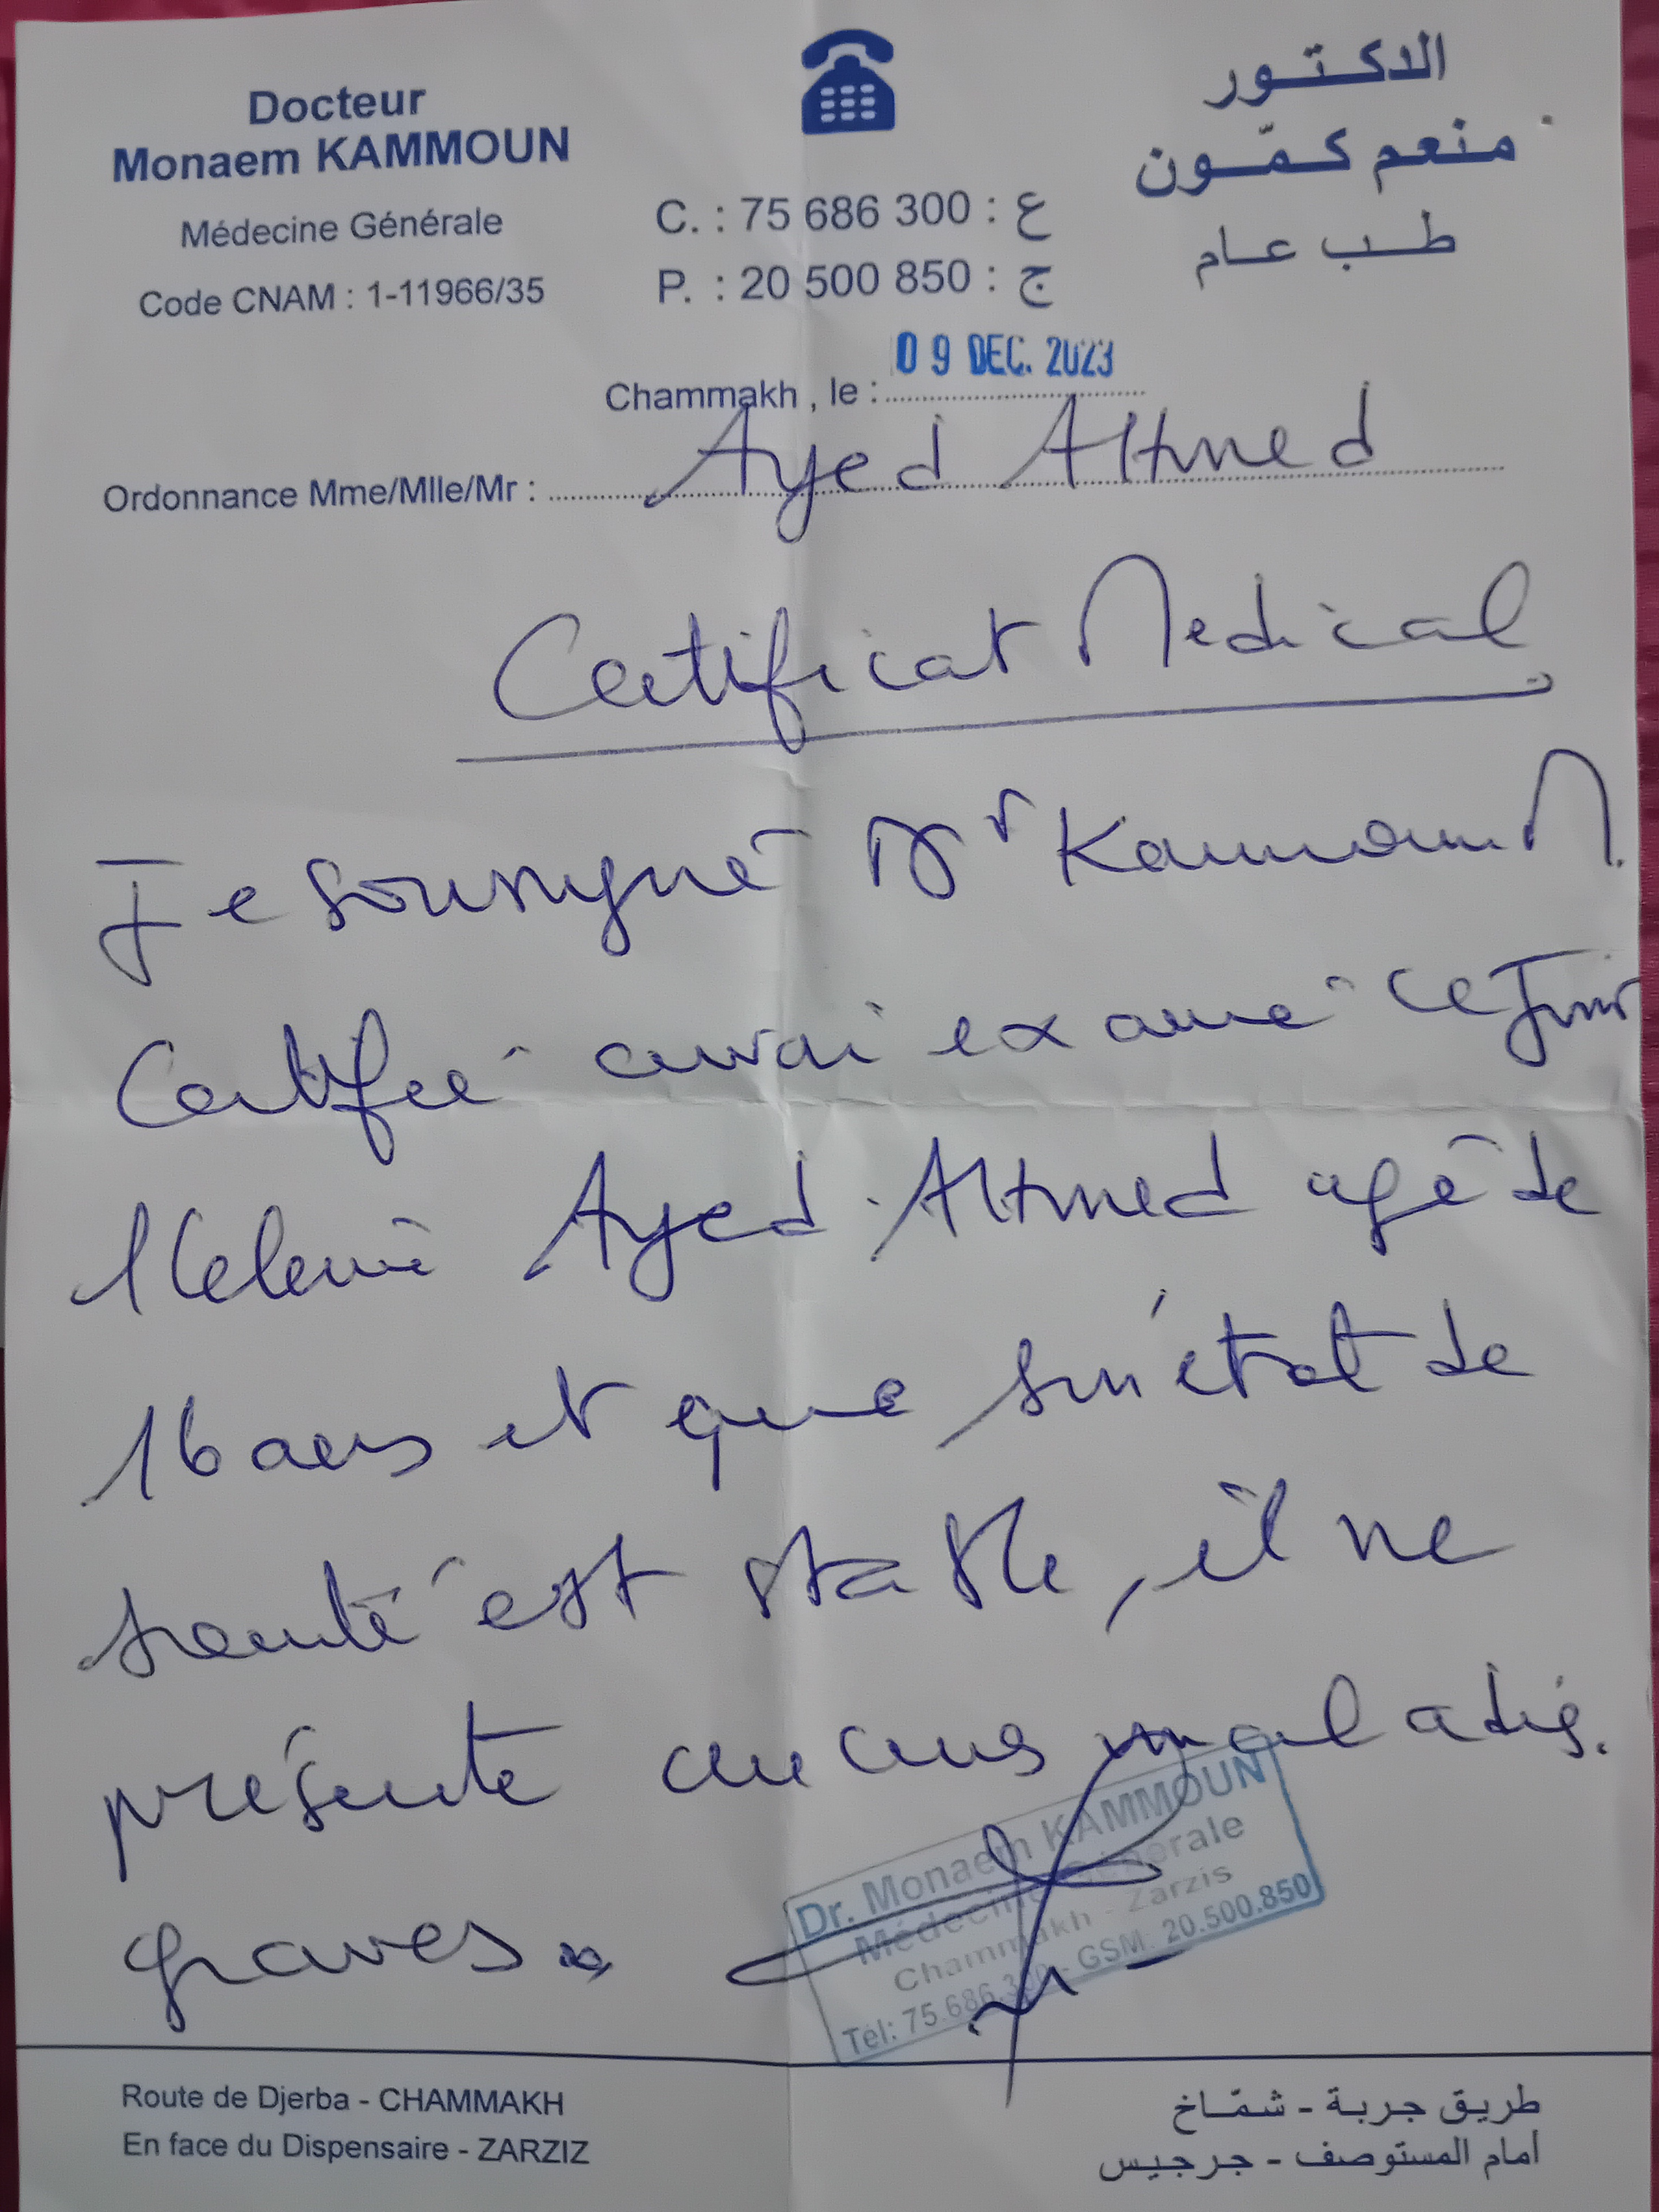 Docteur
Monaem KAMMOUN
Médecine Générale
Code CNAM : 1-11966/35
C. : 75 686 300 : ع
P. : 20 500 850 : ج
الدكتور
منعم كمّون
طب عام
09 DEC. 2023
Chammakh , le :
Ordonnance Mme/Mlle/Mr : Ayed Ahmed
Certificat Medical
Je soussigné Dr Kammoun M.
Certifié avoir examé ce jour
Ayed Ahmed agé de
16 ans et que son état de
santé est stable, il ne
présente aucuns maladies.
graves.
Dr. Monaem KAMMOUN
Médecine Générale
Chammakh - Zarzis
Tél: 75.686.300 - GSM: 20.500.850
Route de Djerba - CHAMMAKH
En face du Dispensaire - ZARZIZ
طريق جربة - شمّاخ
أمام المستوصف - جرجيس